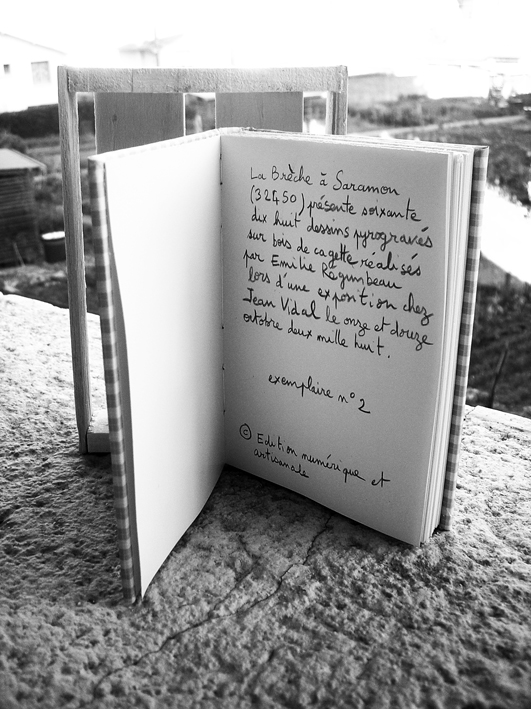 La Brèche à Saramon
(32450) présente soixante
dix huit dessins pyrogravés
sur bois de cagette réalisés
par Emilie Régimbeau
lors d'une exposition chez
Jean Vidal le onze et douze
octobre deux mille huit.
exemplaire n°2
© Edition numérique et
artisanale